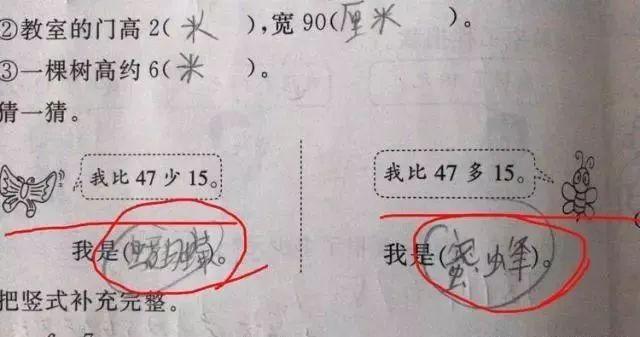 ②教室的门高2(米)，宽90(厘米)。
③一棵树高约6(米)。
猜一猜。
我比47少15。
我比47多15。
我是(蝴蝶)。
我是(蜜蜂)。
把竖式补充完整。